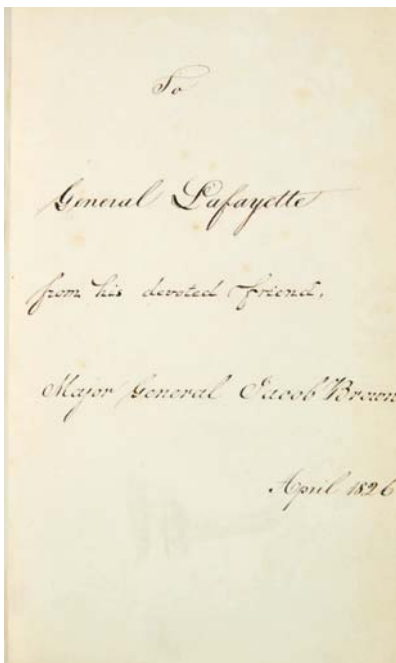 To
General Lafayette
from his devoted friend,
Major General Jacob Brown
April 1826